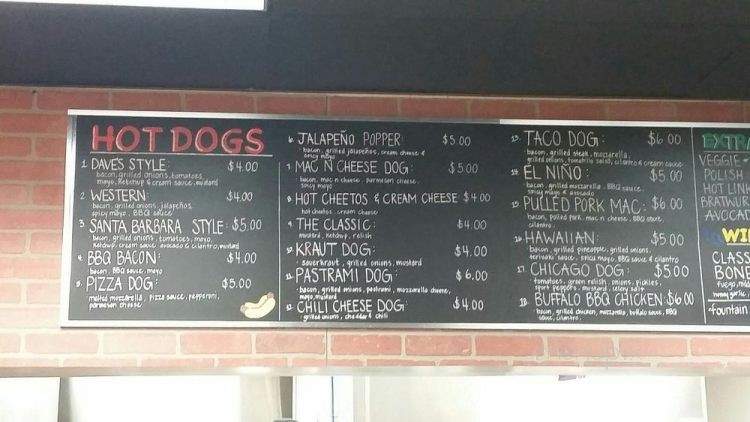 HOT DOGS
1. DAVE'S STYLE: $4.00
bacon, grilled onions, tomatoes,
mayo, ketchup & cream sauce, mustard
2. WESTERN: $4.00
bacon, grilled onions, jalapeños,
spicy mayo, BBQ sauce
3. SANTA BARBARA STYLE: $5.00
bacon, grilled onions, tomatoes, mayo,
ketchup, cream sauce, avocado & cilantro, mustard
4. BBQ BACON: $4.00
bacon, BBQ sauce, mayo
5. PIZZA DOG: $5.00
melted mozzarella, pizza sauce, pepperoni,
parmesan cheese
6. JALAPEÑO POPPER: $5.00
bacon, grilled jalapeños, cream cheese &
spicy mayo
7. MAC N CHEESE DOG: $5.00
bacon, mac n cheese, parmesan cheese,
spicy mayo
8. HOT CHEETOS & CREAM CHEESE $4.00
hot cheetos, cream cheese
9. THE CLASSIC: $4.00
mustard, ketchup, relish
10. KRAUT DOG: $4.00
sauerkraut, grilled onions, mustard
11. PASTRAMI DOG: $6.00
bacon, grilled onions, pastrami, mozzarella cheese,
mayo, mustard
12. CHILI CHEESE DOG: $4.00
grilled onions, cheddar & chili
13. TACO DOG: $6.00
bacon, grilled steak, mozzarella,
grilled onions, tomatillo salsa, cilantro & cream sauce
14. EL NIÑO: $5.00
bacon, grilled mozzarella, BBQ sauce,
spicy mayo & avocado
15. PULLED PORK MAC: $6.00
bacon, pulled pork, mac n cheese, BBQ sauce,
cilantro
16. HAWAIIAN: $5.00
bacon, grilled pineapple, grilled onions,
teriyaki sauce, spicy mayo, BBQ sauce & cilantro
17. CHICAGO DOG: $5.00
tomatoes, green relish, onions, pickles,
sport peppers, mustard, celery salt
18. BUFFALO BBQ CHICKEN: $6.00
bacon, grilled chicken, mozzarella, buffalo sauce, BBQ
sauce, cilantro
EXTR
VEGGIE
POLISH
HOT LIN
BRATWUR
AVOCA
WI
CLASS
BONE
fountain